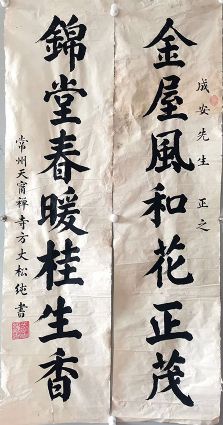 成安先生 正之
金屋風和花正茂
錦堂春暖桂生香
常州天甯禅寺方丈松純書